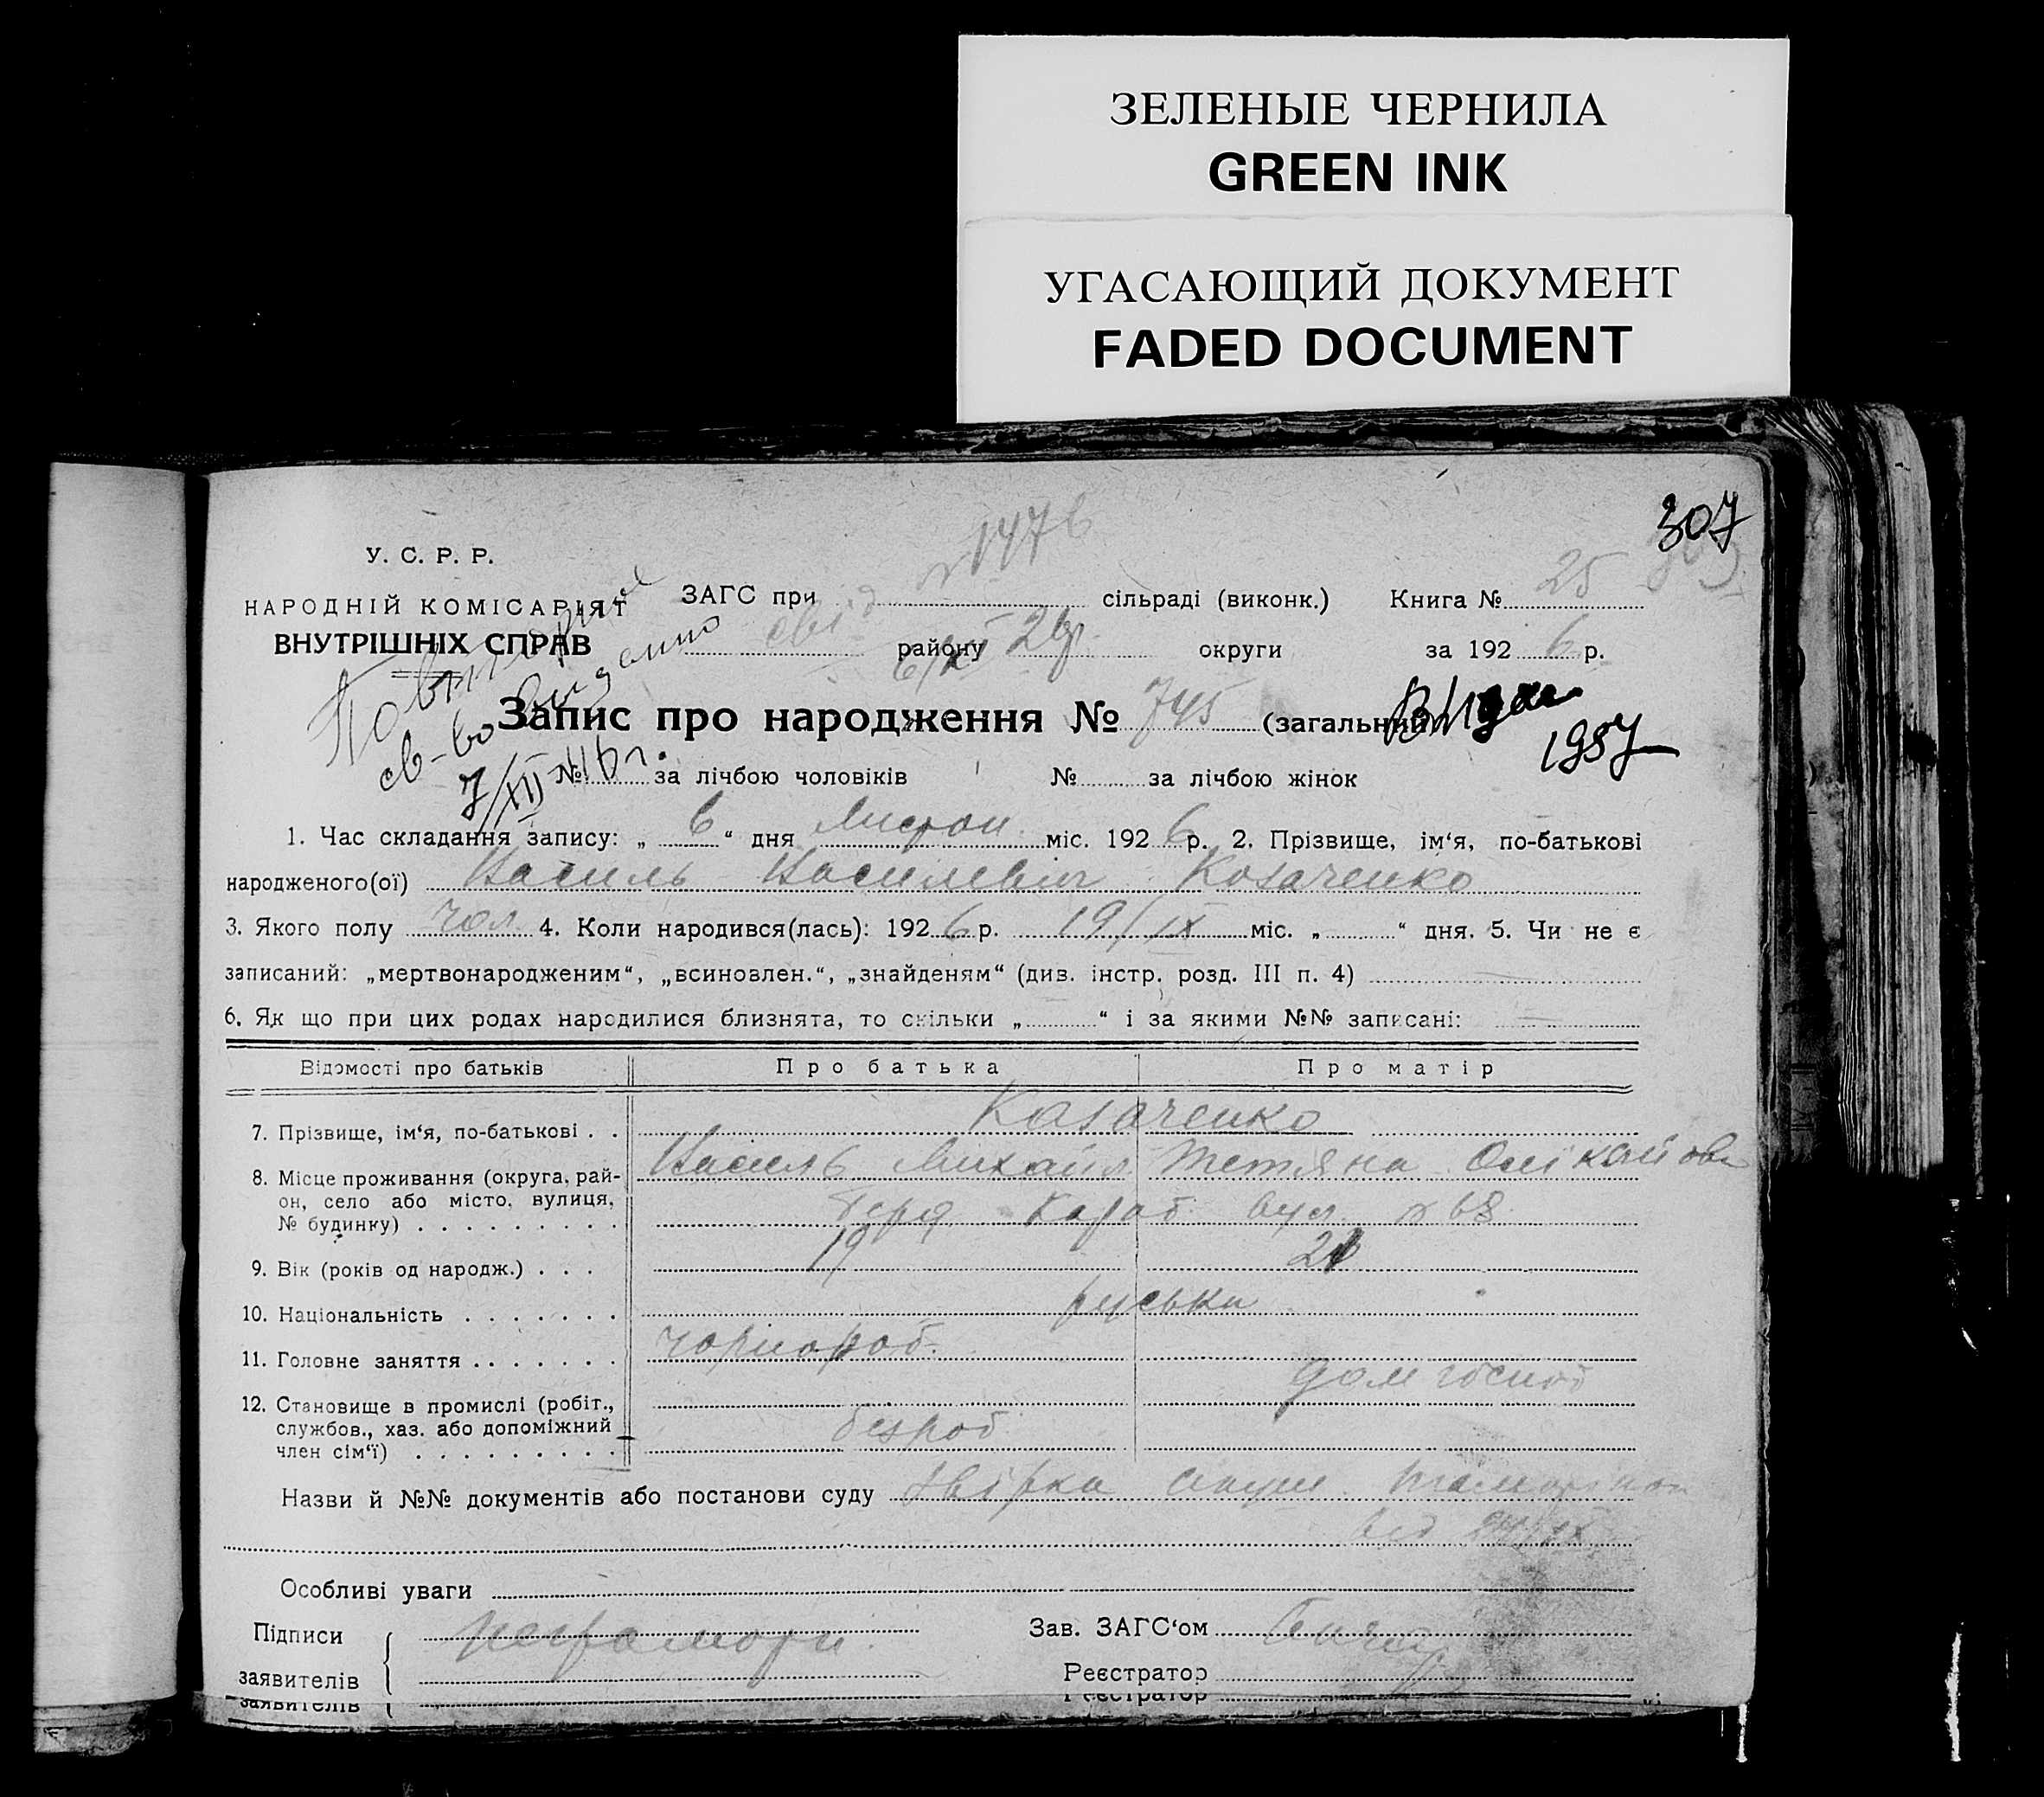 ЗЕЛЕНЫЕ ЧЕРНИЛА
GREEN INK
УГАСАЮЩИЙ ДОКУМЕНТ
FADED DOCUMENT
307
У. С. Р. Р.
НАРОДНІЙ КОМІСАРІЯТ
ВНУТРІШНІХ СПРАВ
№ 1476
ЗАГС при сільраді (виконк.) Книга № 25
свід району округи за 192 6 р.
Повторне
св-во видано
7/XII-46 г.
Запис про народження № 745 (загальний)
Видан
1937
№ за лічбою чоловіків № за лічбою жінок
1. Час складання запису: „ 6 “ дня Листоп міс. 192 6 р. 2. Прізвище, ім‘я, по-батькові
народженого(ої) Василь Васильвіч Козаченко
3. Якого полу чол 4. Коли народився(лась): 192 6 р. 19/IX міс. „ “ дня. 5. Чи не є
записаний: „мертвонародженим“, „всиновлен.“, „знайденям“ (див. інстр. розд. III п. 4)
6. Як що при цих родах народилися близнята, то скільки „ “ і за якими №№ записані:
Відомості про батьків Про батька Про матір
7. Прізвище, ім‘я, по-батькові . . Козаченко
Василь Михайл Тетяна
8. Місце проживання (округа, рай-
он, село або місто, вулиця,
№ будинку) . . . . . . . . . вул. № 68
9. Вік (років од народж.) . . . 19 21
10. Національність . . . . . . . руськи
11. Головне заняття . . . . . . . чорнороб. дом господ
12. Становище в промислі (робіт.,
службов., хаз. або допоміжний
член сім‘ї) . . . . . . . . . безроб
Назви й №№ документів або постанови суду
від
Особливі уваги
Підписи неграмотн. Зав. ЗАГС‘ом
заявителів Реєстратор
заявителів Реєстратор